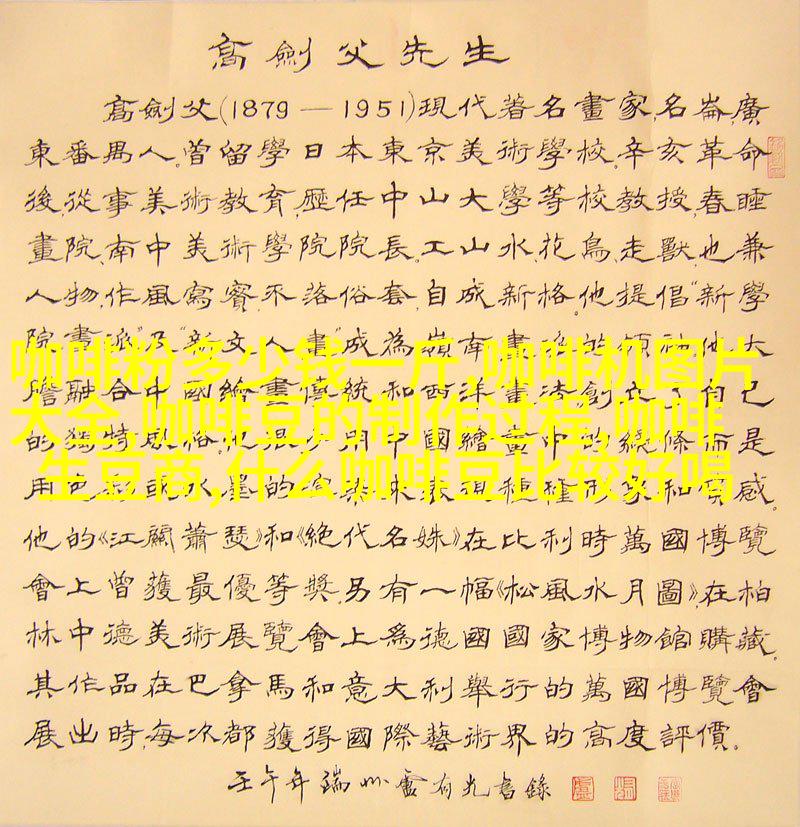 高劍父先生
高劍父(1879—1951)現代著名畫家,名崙,廣
東番禺人。曾留學日本東京美術學校。辛亥革命
後,從事美術教育,歷任中山大學等校教授,春睡
畫院、南中美術學院院長。工山水、花鳥、走獸,也兼
人物,作風寫實,不落俗套,自成新格。他提倡"新學
院畫派"及"新文人畫"成為嶺南畫 的領袖他大
咖啡粉多少钱一斤,咖啡机图片
膽融合中國繪畫傳統和西洋畫法創立了自己
大全,咖啡豆的制作过程,咖啡
的獨特風格。他很少用中國繪畫中的綫條而是
生豆商,什么咖啡豆比较好喝
用色 或水墨的 染來表 種種形象和實感。
他的《江關蕭瑟》和《絕代名姝》在比利時萬國博覽
會上曾獲最優等獎。另有一幅《松風水月圖》,在柏
林中德美術展覽會上爲德國國家博物館購藏。
其作品在巴拿馬和意大利舉行的萬國博覽會
展出時,每次都獲得國際藝術界的高度評價。
壬午年端州盧有光書錄